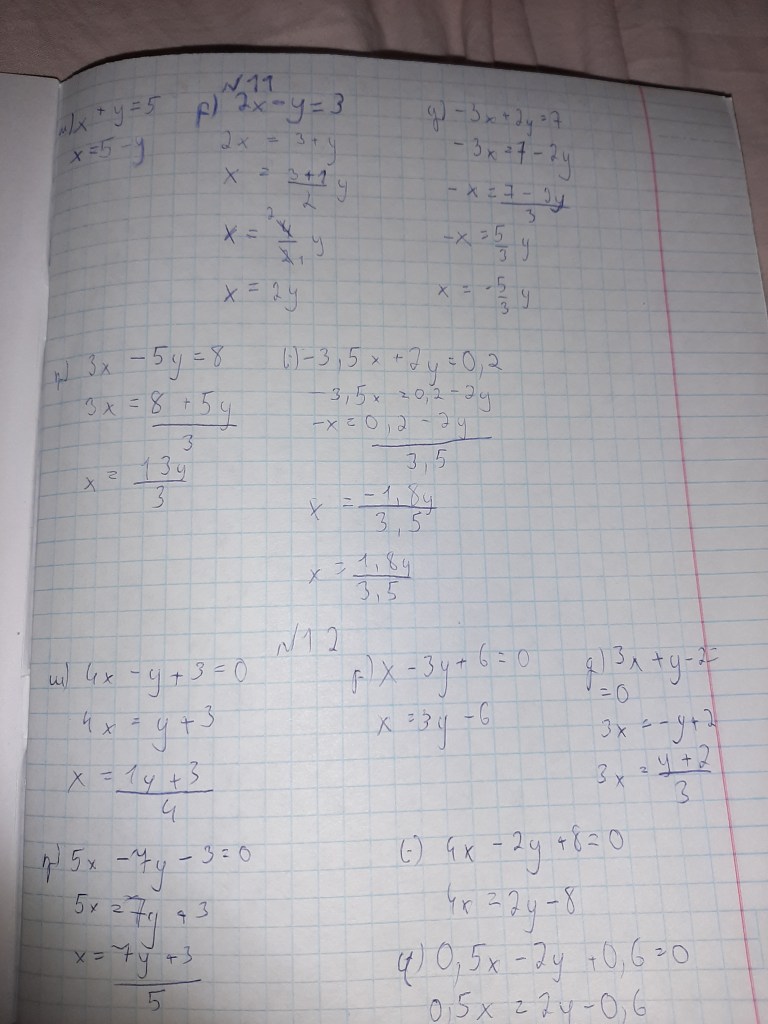 №11
x + y = 5
x = 5 - y
β) 2x - y = 3
2x = 3 + y
x = \frac{3+1}{2} y
x = \frac{4}{2} y
x = 2y
-3x + 2y = 7
-3x = 7 - 2y
-x = \frac{7 - 2y}{3}
-x = \frac{5}{3} y
x = -\frac{5}{3} y
3x - 5y = 8
3x = \frac{8 + 5y}{3}
x = \frac{13y}{3}
-3,5x + 2y = 0,2
-3,5x = 0,2 - 2y
-x = \frac{0,2 - 2y}{3,5}
x = \frac{-1,8y}{3,5}
x = \frac{1,8y}{3,5}
№12
4x - y + 3 = 0
4x = y + 3
x = \frac{1y + 3}{4}
x - 3y + 6 = 0
x = 3y - 6
3x + y - 2 =
= 0
3x = -y + 2
3x = \frac{y + 2}{3}
5x - 7y - 3 = 0
5x = 7y + 3
x = \frac{7y + 3}{5}
4x - 2y + 8 = 0
4x = 2y - 8
0,5x - 2y + 0,6 = 0
0,5x = 2y - 0,6